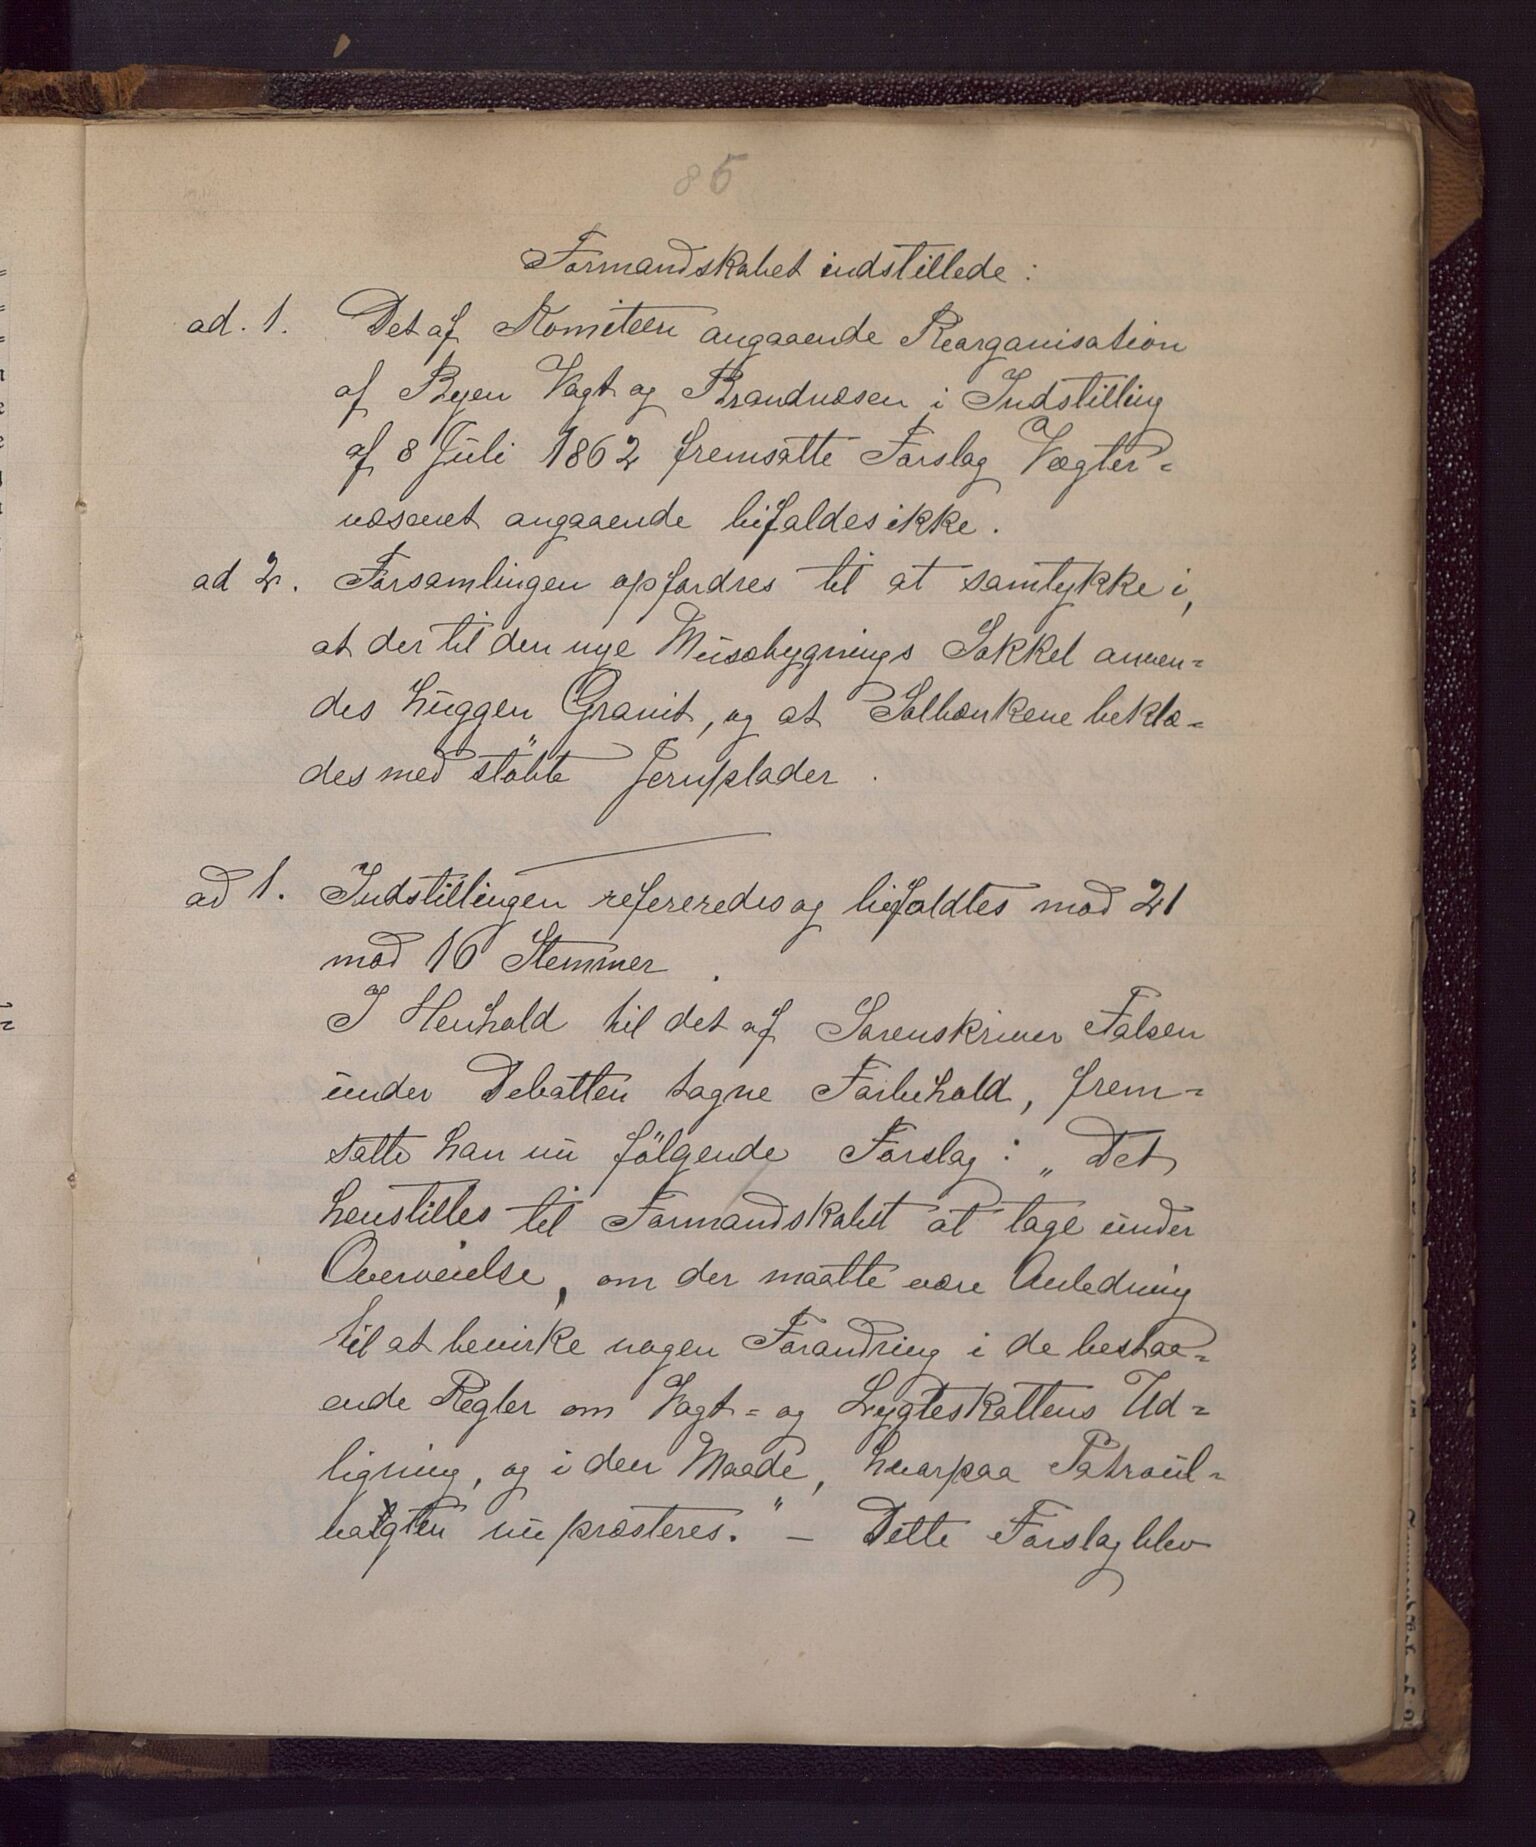 85
Formandskabet indstillede:
ad. 1. Det af Komiteen angaaende Reorganisation
af Byen Vagt og Brandvæsen i Indstilling
af 8 Juli 1862 fremsatte Forslag Vægter=
væsenet angaaende bifaldes ikke.
ad 2. Forsamlingen opfordres til at samtykke i,
at der til den nye Musæbygnings Sokkel anven=
des huggen Granit, og at Solbænkene beklæ=
des med støbte Jernplader.
ad 1. Indstillingen refereredes og bifaldtes mod 21
mod 16 Stemmer.
I Henhold til det af Sorenskriver Falsen
under Debatten tagne Forbehold, frem=
satte han nu følgende Forslag: „Det
henstilles til Formandskabet at tage under
Overveielse, om der maatte være Anledning
til at bevirke nogen Forandring i de bestaa=
ende Regler om Vagt= og Lygteskattens Ud=
ligning, og i den Maade, hvorpaa Patroul=
vagten nu præsteres." — Dette Forslag blev